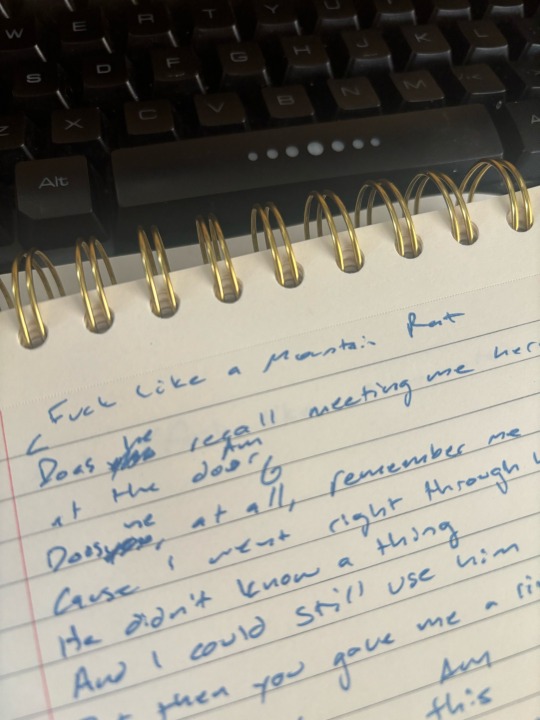 W E R T Y U I O P
S D F G H J K L
Z X C V B N M
Alt
Fuck Like a Mountain Rat
C
Does he recall meeting me here
Am
at the door
G
Does he, at all, remember me
Cause I went right through
He didn't know a thing
And I could still use him
But then you gave me a
Am
this